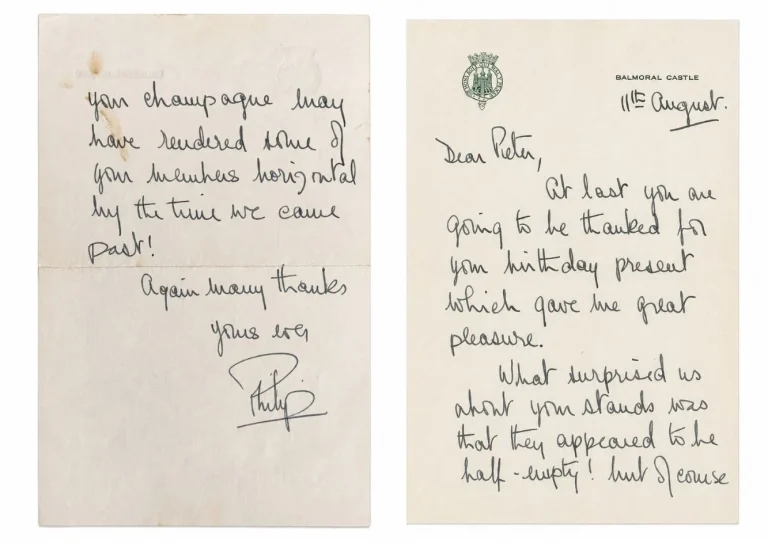 BALMORAL CASTLE
11th August.
Dear Pieter,
At last you are
going to be thanked for
your birthday present
which gave me great
pleasure.
What surprised us
about your stands was
that they appeared to be
half-empty! but of course
your champagne may
have rendered some of
your members horizontal
by the time we came
past!
Again many thanks
yours ever
Philip